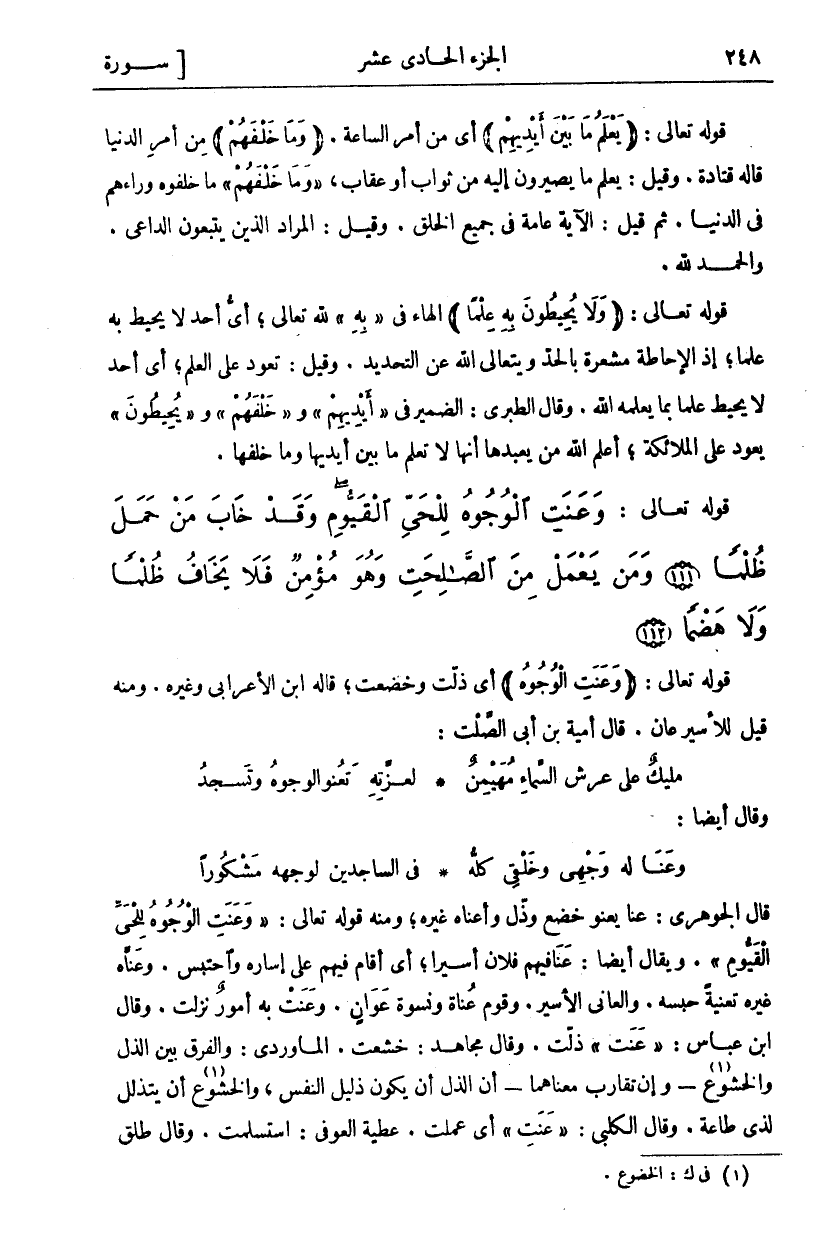 ٢٤٨ الجزء الحادى عشر [ ســورة
قوله تعالى : ﴿ يَعْلَمُ مَا بَيْنَ أَيْدِيهِمْ ﴾ أى من أمر الساعة . ﴿ وَمَا خَلْفَهُمْ ﴾ مِن أمرِ الدنيا
قاله قتادة . وقيل : يعلم ما يصيرون إليه من ثواب أو عقاب ، «وَمَا خَلْفَهُمْ» ما خلفوه وراءهم
فى الدنيـا . ثم قيل : الآية عامة فى جميع الخلق . وقيـل : المراد الذين يتبعون الداعى .
والحمـد لله .
قوله تعـالى : ﴿ وَلَا يُحِيطُونَ بِهِ عِلْمًا ﴾ الهاء فى « بِهِ » لله تعالى ؛ أىُّ أحد لا يحيط به
علما ؛ إذ الإحاطة مشعرة بالحدّ ويتعالى الله عن التحديد . وقيل : تعود على العلم ؛ أى أحد
لا يحيط علما بما يعلمه الله . وقال الطبرى : الضمير فى « أَيْدِيهِمْ » و « خَلْفَهُمْ » و « يُحِيطُونَ »
يعود على الملائكة ؛ أعلم الله من يعبدها أنها لا تعلم ما بين أيديها وما خلفها .
قوله تعـالى : وَعَنَتِ ٱلْوُجُوهُ لِلْحَيِّ ٱلْقَيُّومِ ۖ وَقَـدْ خَابَ مَنْ حَمَـلَ
ظُلْمًا ﴿١١١﴾ وَمَن يَعْمَلْ مِنَ ٱلصَّـٰلِحَـٰتِ وَهُوَ مُؤْمِنٌ فَلَا يَخَافُ ظُلْمًا
وَلَا هَضْمًا ﴿١١٢﴾
قوله تعالى : ﴿ وَعَنَتِ الْوُجُوهُ ﴾ أى ذلّت وخضعت ؛ قاله ابن الأعرابى وغيره . ومنه
قيل للأسير عان . قال أمية بن أبى الصَّلْت :
مليكٌ على عرش السَّماءِ مُهَيْمِنٌ * لعـزَّتِهِ تَعْنُو الوجوهُ وتَسـجدُ
وقال أيضا :
وعَنَـا له وَجْهِى وخَلْقِى كلُّه * فى الساجدين لوجهه مَشْكُوراً
قال الجوهرى : عنا يعنو خضع وذّل وأعناه غيره ؛ ومنه قوله تعالى : « وَعَنَتِ الْوُجُوهُ لِلْحَىِّ
الْقَيُّومِ » . ويقال أيضا : عَنَا فيهم فلان أسيرا ؛ أى أقام فيهم على إساره وٱحتبس . وعَنَّاه
غيره تعنيةً حبسه . والعانى الأسير . وقوم عُناة ونسوة عَوَانٍ . وعَنَتْ به أمورٌ نزلت . وقال
ابن عبـاس : « عَنَت » ذلّت . وقال مجاهـد : خشعت . المـاوردى : والفرق بين الذل
والخشوع(١) — وإن تقارب معناهما — أن الذل أن يكون ذليل النفس ، والخشوع(١) أن يتذلل
لذى طاعة . وقال الكلبى : « عَنَتِ » أى عملت . عطية العوفى : استسلمت . وقال طلق
(١) فى ك : الخضوع .